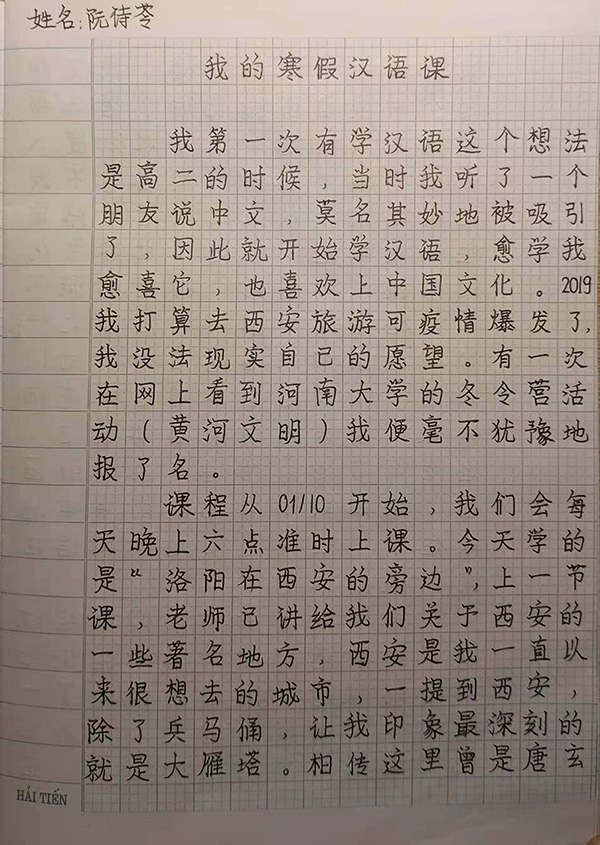 姓名:阮诗苓
我的寒假汉语课
我第一次有学汉语这个想法
是高二的时候，当时我听了一个
朋友说中文，莫名其妙地被吸引
了，因此就开始学汉语，愈学我
愈喜它，也喜欢上中国文化。2019
我打算去西安旅游可疫情爆发了,
我没法现实自已的愿望。有一次
在网上看到河南大学的冬令营活
动（黄河文明）我便毫不犹豫地
报了名。
课程从01/10开始，我们会每
天晚上六点准时上课。今天学的
是“洛阳在西安的旁边”,上一节
课，老师已讲给我们关于西安的
一些著名地方，西安是我一直以
来很想去的城市，一提到西安，
除了兵马俑，让我印象最深刻的
就是大雁塔。相传这里曾是唐玄
HẢI TIẾN